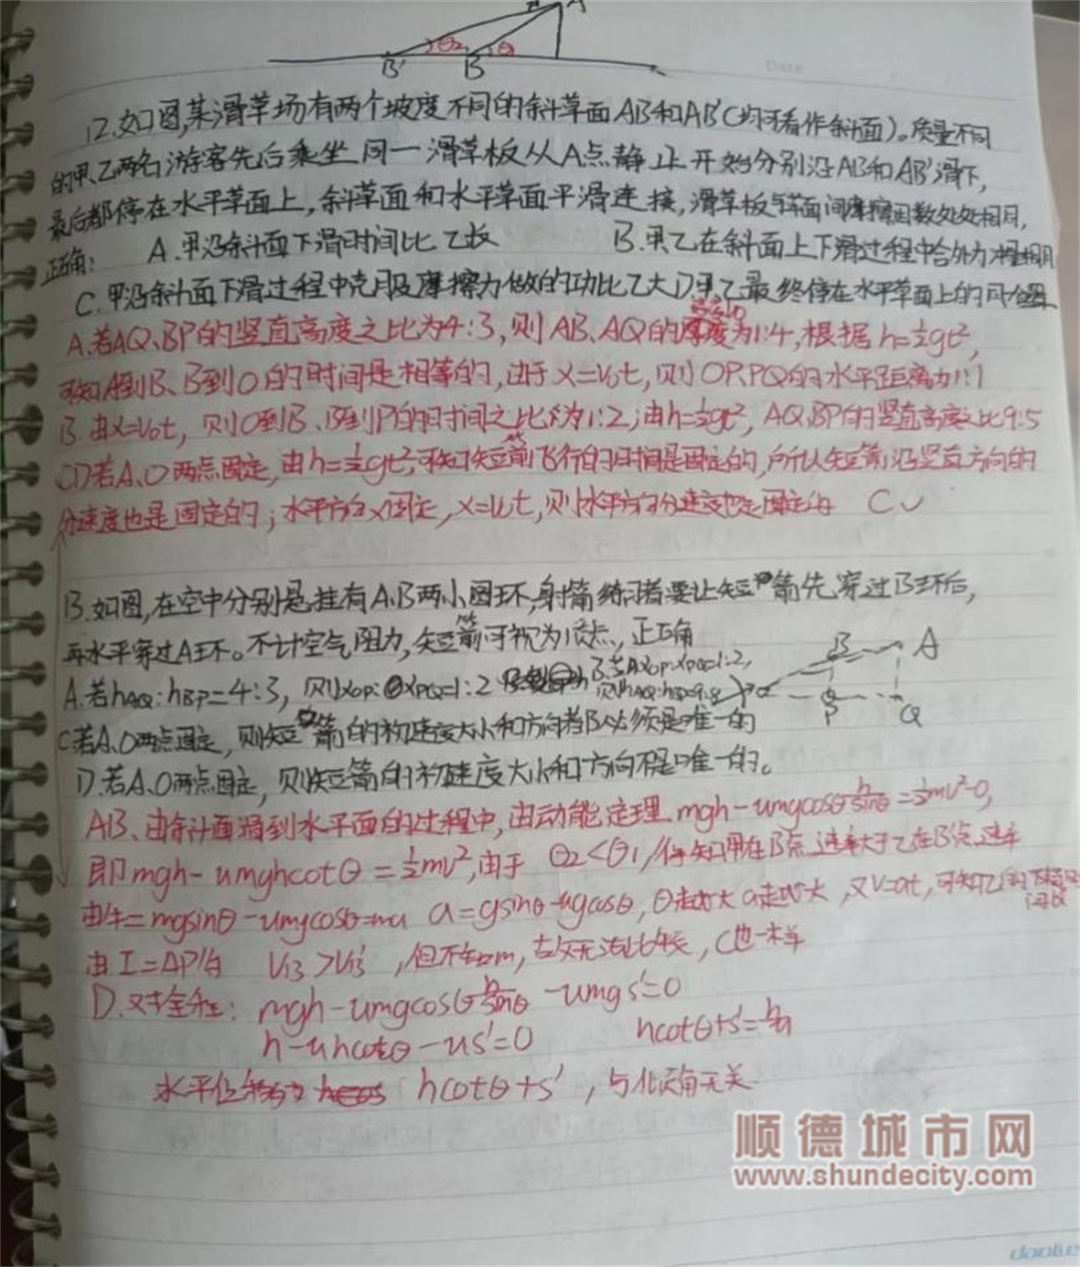 A
θ₂ θ₁
B' B
Date
12.如图,某滑草场有两个坡度不同的斜草面AB和AB'(均可看作斜面)。质量不同
的甲、乙两名游客先后乘坐同一滑草板从A点静止开始分别沿AB和AB'滑下,
最后都停在水平草面上,斜草面和水平草面平滑连接,滑草板与草面间摩擦因数处处相同,
正确: A.甲沿斜面下滑时间比乙长 B.甲乙在斜面上下滑过程中合外力冲量相同
C.甲沿斜面下滑过程中克服摩擦力做的功比乙大 D.甲乙最终停在水平草面上的同一位置
A.若AQ、BP的竖直高度之比为4:3,则AB、AQ的为1:4,根据h=½gt²,
可知A到B、B到O的时间是相等的,由于x=v₀t,则OP、PQ的水平距离为1:1
B.由x=v₀t,则O到B、B到P的时间之比为1:2;由h=½gt²,AQ、BP的竖直高度之比9:5
CD若A、O两点固定,由h=½gt²,可知短箭飞行的时间是固定的,所以短箭沿竖直方向的
分速度也是固定的;水平方向x固定,x=v₀t,则水平方向分速度也是固定的 C✓
13.如图,在空中分别悬挂有A、B两小圆环,射箭练习者要让短箭先穿过B环后,
再水平穿过A环。不计空气阻力,短箭可视为质点,正确
A.若hAQ:hBP=4:3,则xOP:xPQ=1:2 B.若xOP:xPQ=1:2,
则hAQ:hBP=9:8
B A
P Q
C若A、O两点固定,则短箭的初速度大小和方向都必须是唯一的
D.若A、O两点固定,则短箭的初速度大小和方向不是唯一的。
AB、由斜面滑到水平面的过程中,由动能定理 mgh-umgcosθ h/sinθ=½mv²-0,
即mgh-umghcotθ=½mv²,由于 θ₂<θ₁,得知甲在B点速率大于乙在B'点速率
由牛=mgsinθ-umgcosθ=ma a=gsinθ-ugcosθ,θ越大a越大,又v=at,可知乙的
由I=ΔP知 VB>VB',但不知m,故无法比较,C也一样
D.对全程: mgh-umgcosθ h/sinθ-umgs'=0
h-uhcotθ-us'=0 hcotθ+s'=h/u
水平位移为 hcotθ+s',与倾角无关
顺德城市网
www.shundecity.com